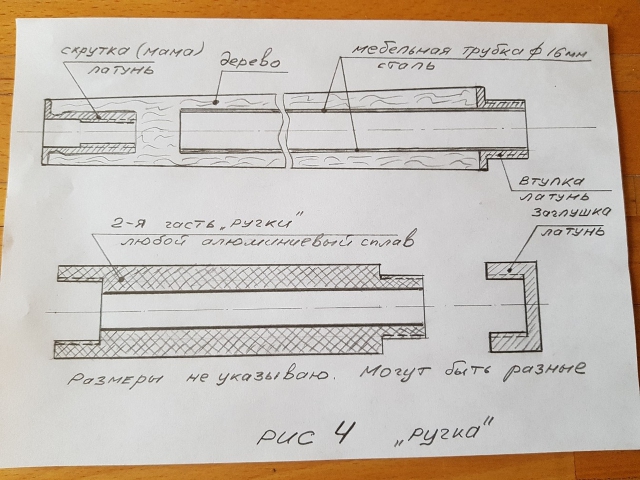 скрутка (мама)
латунь
дерево
мебельная трубка ф 16мм
сталь
втулка
латунь
Заглушка
латунь
2-я часть „Ручки"
любой алюминиевый сплав
Размеры не указываю. Могут быть разные
Рис 4 „Ручка"